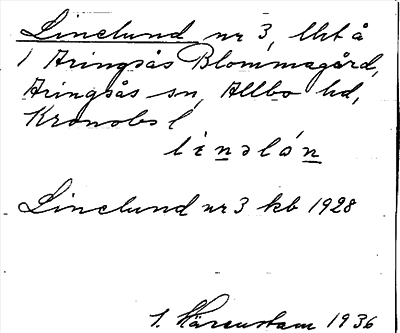 Linelund nr 3, lht å
1 Aringsås Blommagård,
Aringsås sn, Allbo hd,
Kronobs l
linəlón
Linelund nr 3 kb 1928
1936